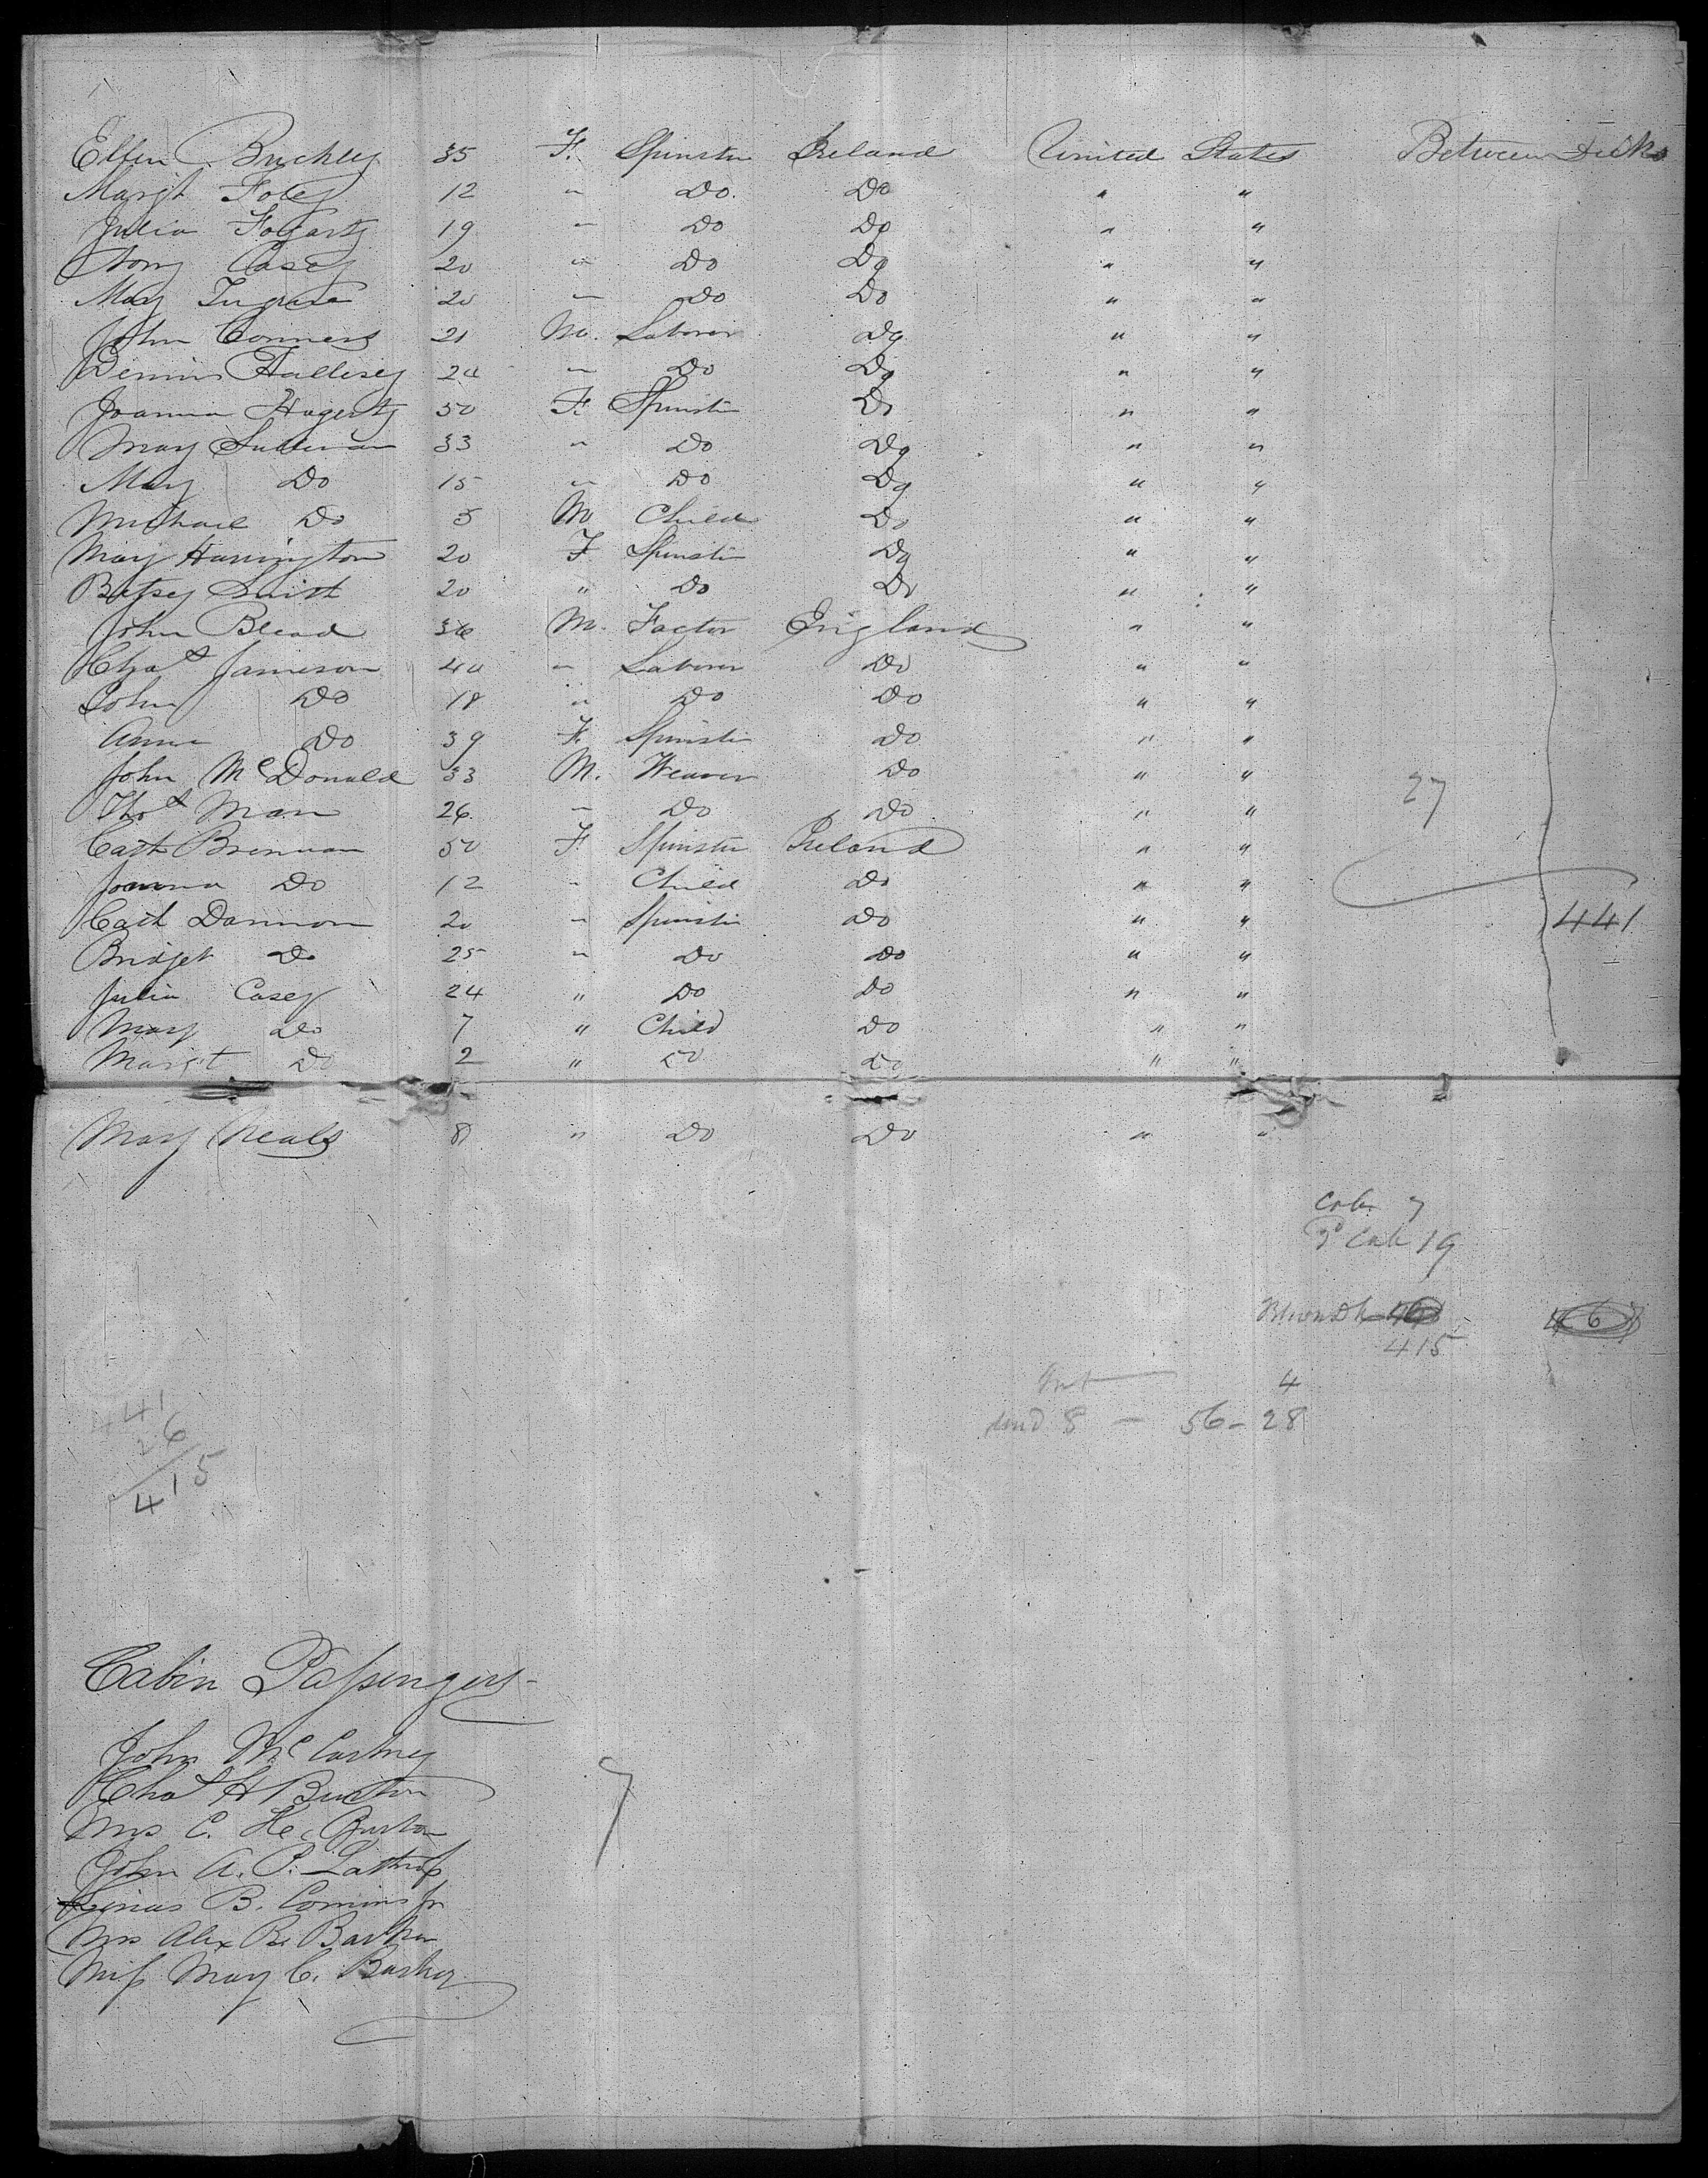 Ellen Buckley 35 F. Spinster Ireland United States Between Decks
Margt Foley 12 " Do. Do " "
Julia Fogarty 19 " Do Do " "
Casey 20 " Do Do " "
Mary 20 " Do Do " "
John Conners 21 M. Laborer Do " "
Dennis Hallisey 24 " Do Do " "
Joanna Hagerty 50 F. Spinster Do " "
Mary Sullivan 33 " Do Do " "
Mary Do 15 " Do Do " "
Michael Do 5 M Child Do " "
Mary Harrington 20 F Spinster Do " "
Betsey Smith 20 " Do Do " "
John Blead 36 M. Factor England " "
Chas Jameson 40 " Laborer Do " "
John Do 18 " Do Do " "
Anna Do 39 F. Spinster Do " "
John McDonald 33 M. Weaver Do " "
27
Thos Man 26 " Do Do " "
Cath Brennan 50 F Spinster Ireland " "
Joanna Do 12 " Child Do " "
Cath Dannon 20 " Spinster Do " " 441
Bridget Do 25 " Do Do " "
Julia Casey 24 " Do Do " "
Mary Do 7 " Child Do " "
Margt Do 2 " Do Do " "
Mary Neals 8 " Do Do " "
Cab. 7
2d Cab 19
415
4
8 — 56 — 28
441
26
415
Cabin Passengers
John McCartney
Chas H Burton
Mrs C. H. Burton
7
John A. P. Lathrop
Linus B. Comins Jr
Mrs Alex B. Barker
Miss Mary C. Barker